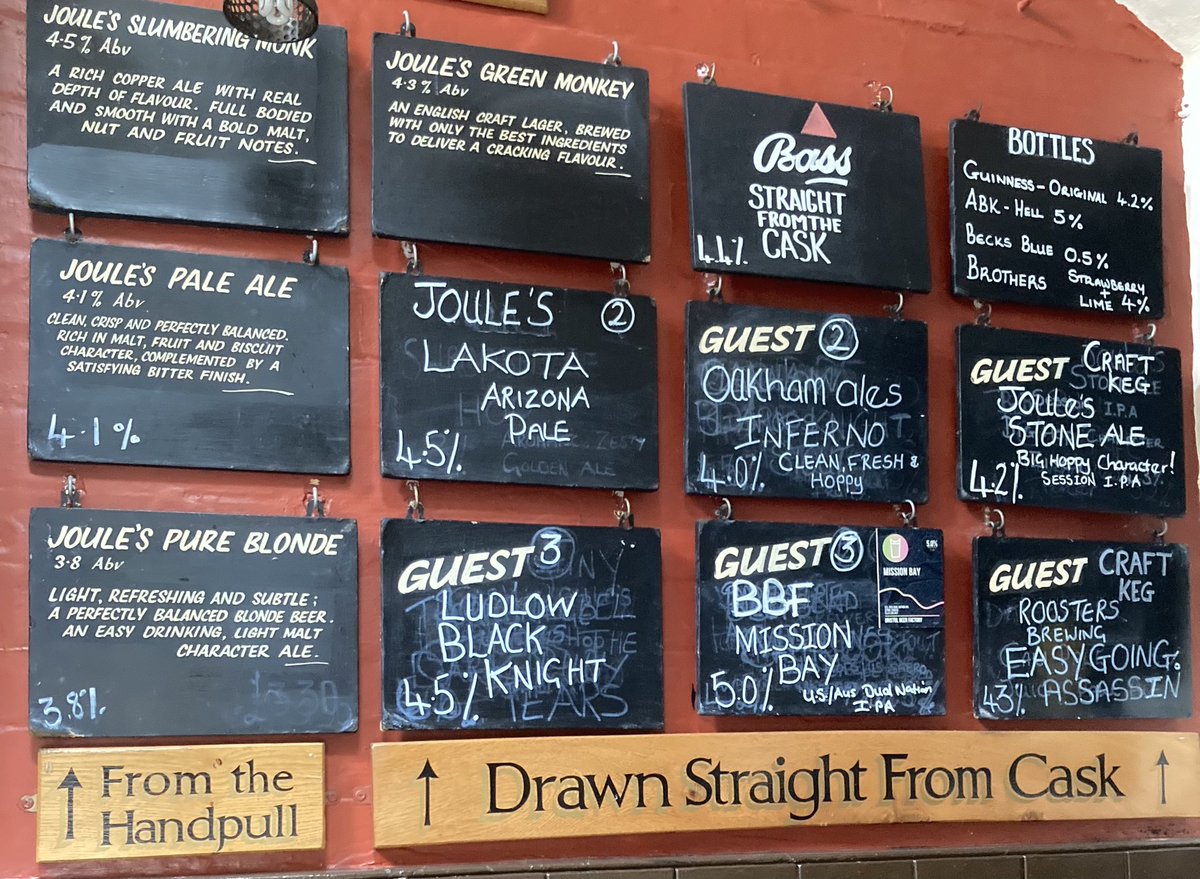 JOULE'S SLUMBERING MONK
4.5% Abv
A RICH COPPER ALE WITH REAL
DEPTH OF FLAVOUR. FULL BODIED
AND SMOOTH WITH A BOLD MALT,
NUT AND FRUIT NOTES.
JOULE'S GREEN MONKEY
4.3% Abv
AN ENGLISH CRAFT LAGER, BREWED
WITH ONLY THE BEST INGREDIENTS
TO DELIVER A CRACKING FLAVOUR.
Bass
STRAIGHT
FROM THE
CASK
4.4%
BOTTLES
GUINNESS-ORIGINAL 4.2%
ABK-HELL 5%
BECKS BLUE 0.5%
BROTHERS STRAWBERRY
+
LIME 4%
JOULE'S PALE ALE
4.1% Abv
CLEAN, CRISP AND PERFECTLY BALANCED.
RICH IN MALT, FRUIT AND BISCUIT
CHARACTER, COMPLEMENTED BY A
SATISFYING BITTER FINISH.
4.1%
JOULE'S 2
LAKOTA
ARIZONA
PALE
4.5%
GOLDEN ALE
GUEST 2
Oakham ales
INFERNO
4.0% CLEAN, FRESH &
HOPPY
GUEST CRAFT
KEG
JOULE'S
STONE ALE
BIG HOPPY Character!
4.2% SESSION I.P.A
JOULE'S PURE BLONDE
3.8 Abv
LIGHT, REFRESHING AND SUBTLE;
A PERFECTLY BALANCED BLONDE BEER.
AN EASY DRINKING, LIGHT MALT
CHARACTER ALE.
3.8%
GUEST 3
LUDLOW
BLACK
KNIGHT
4.5%
GUEST 3
BBF
MISSION
BAY
5.0% U.S./Aus Dual Nation
I.P.A
5.0%
MISSION BAY
BRISTOL BEER FACTORY
GUEST CRAFT
KEG
ROOSTERS
BREWING
EASYGOING.
4.3% ASSASSIN
From the
Handpull
Drawn Straight From Cask